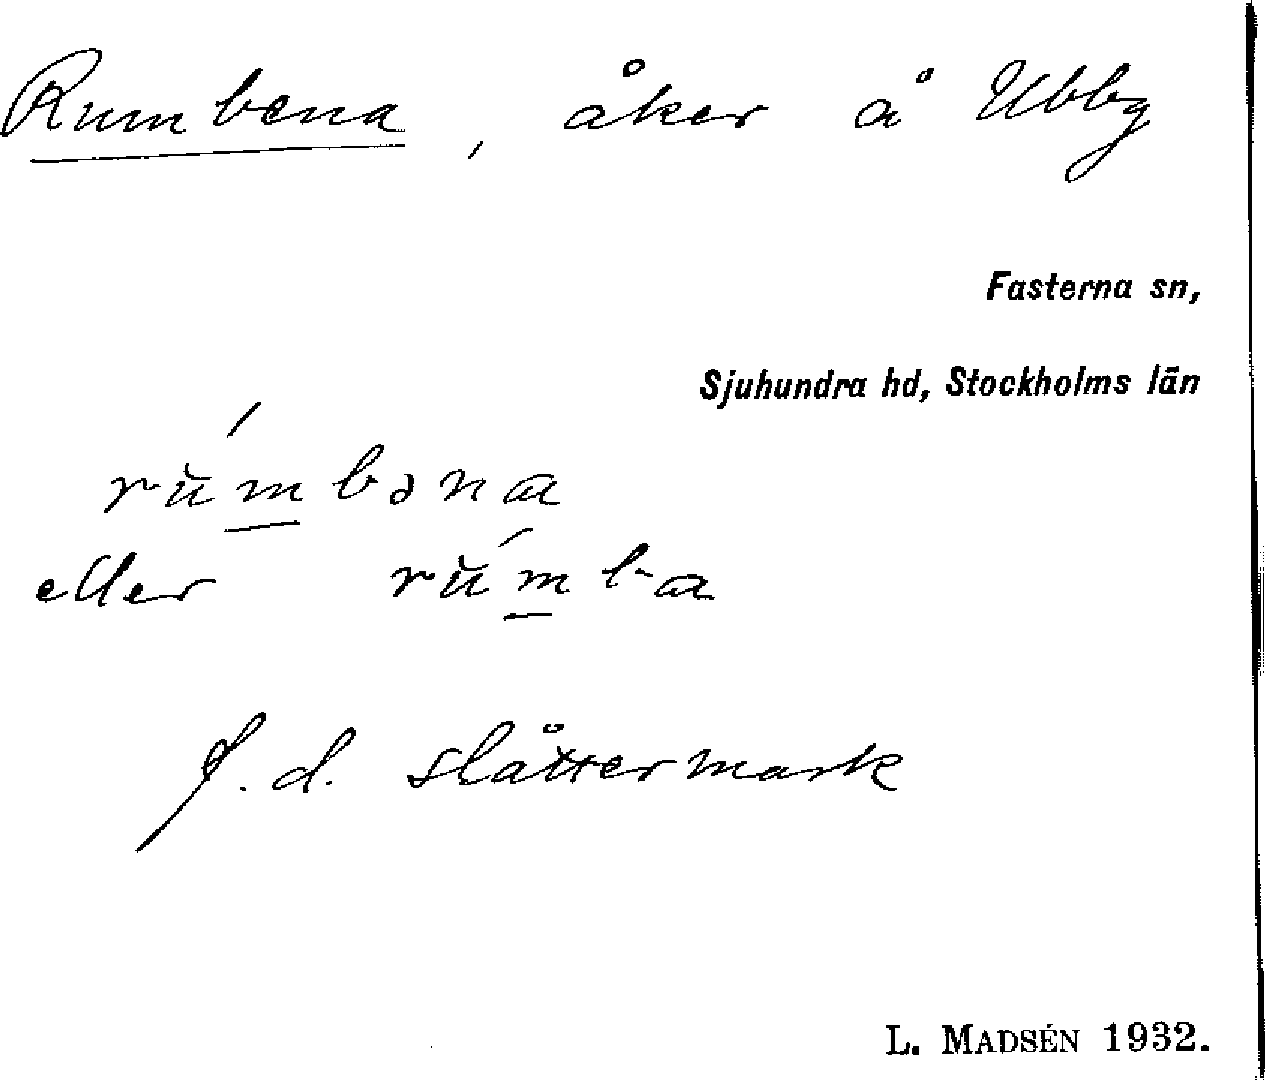 Rumbena, åker å Ubby
Fasterna sn,
Sjuhundra hd, Stockholms län
rŭ́mbəna
eller rŭ́mba
f. d. slåttermark
L. MADSÉN 1932.